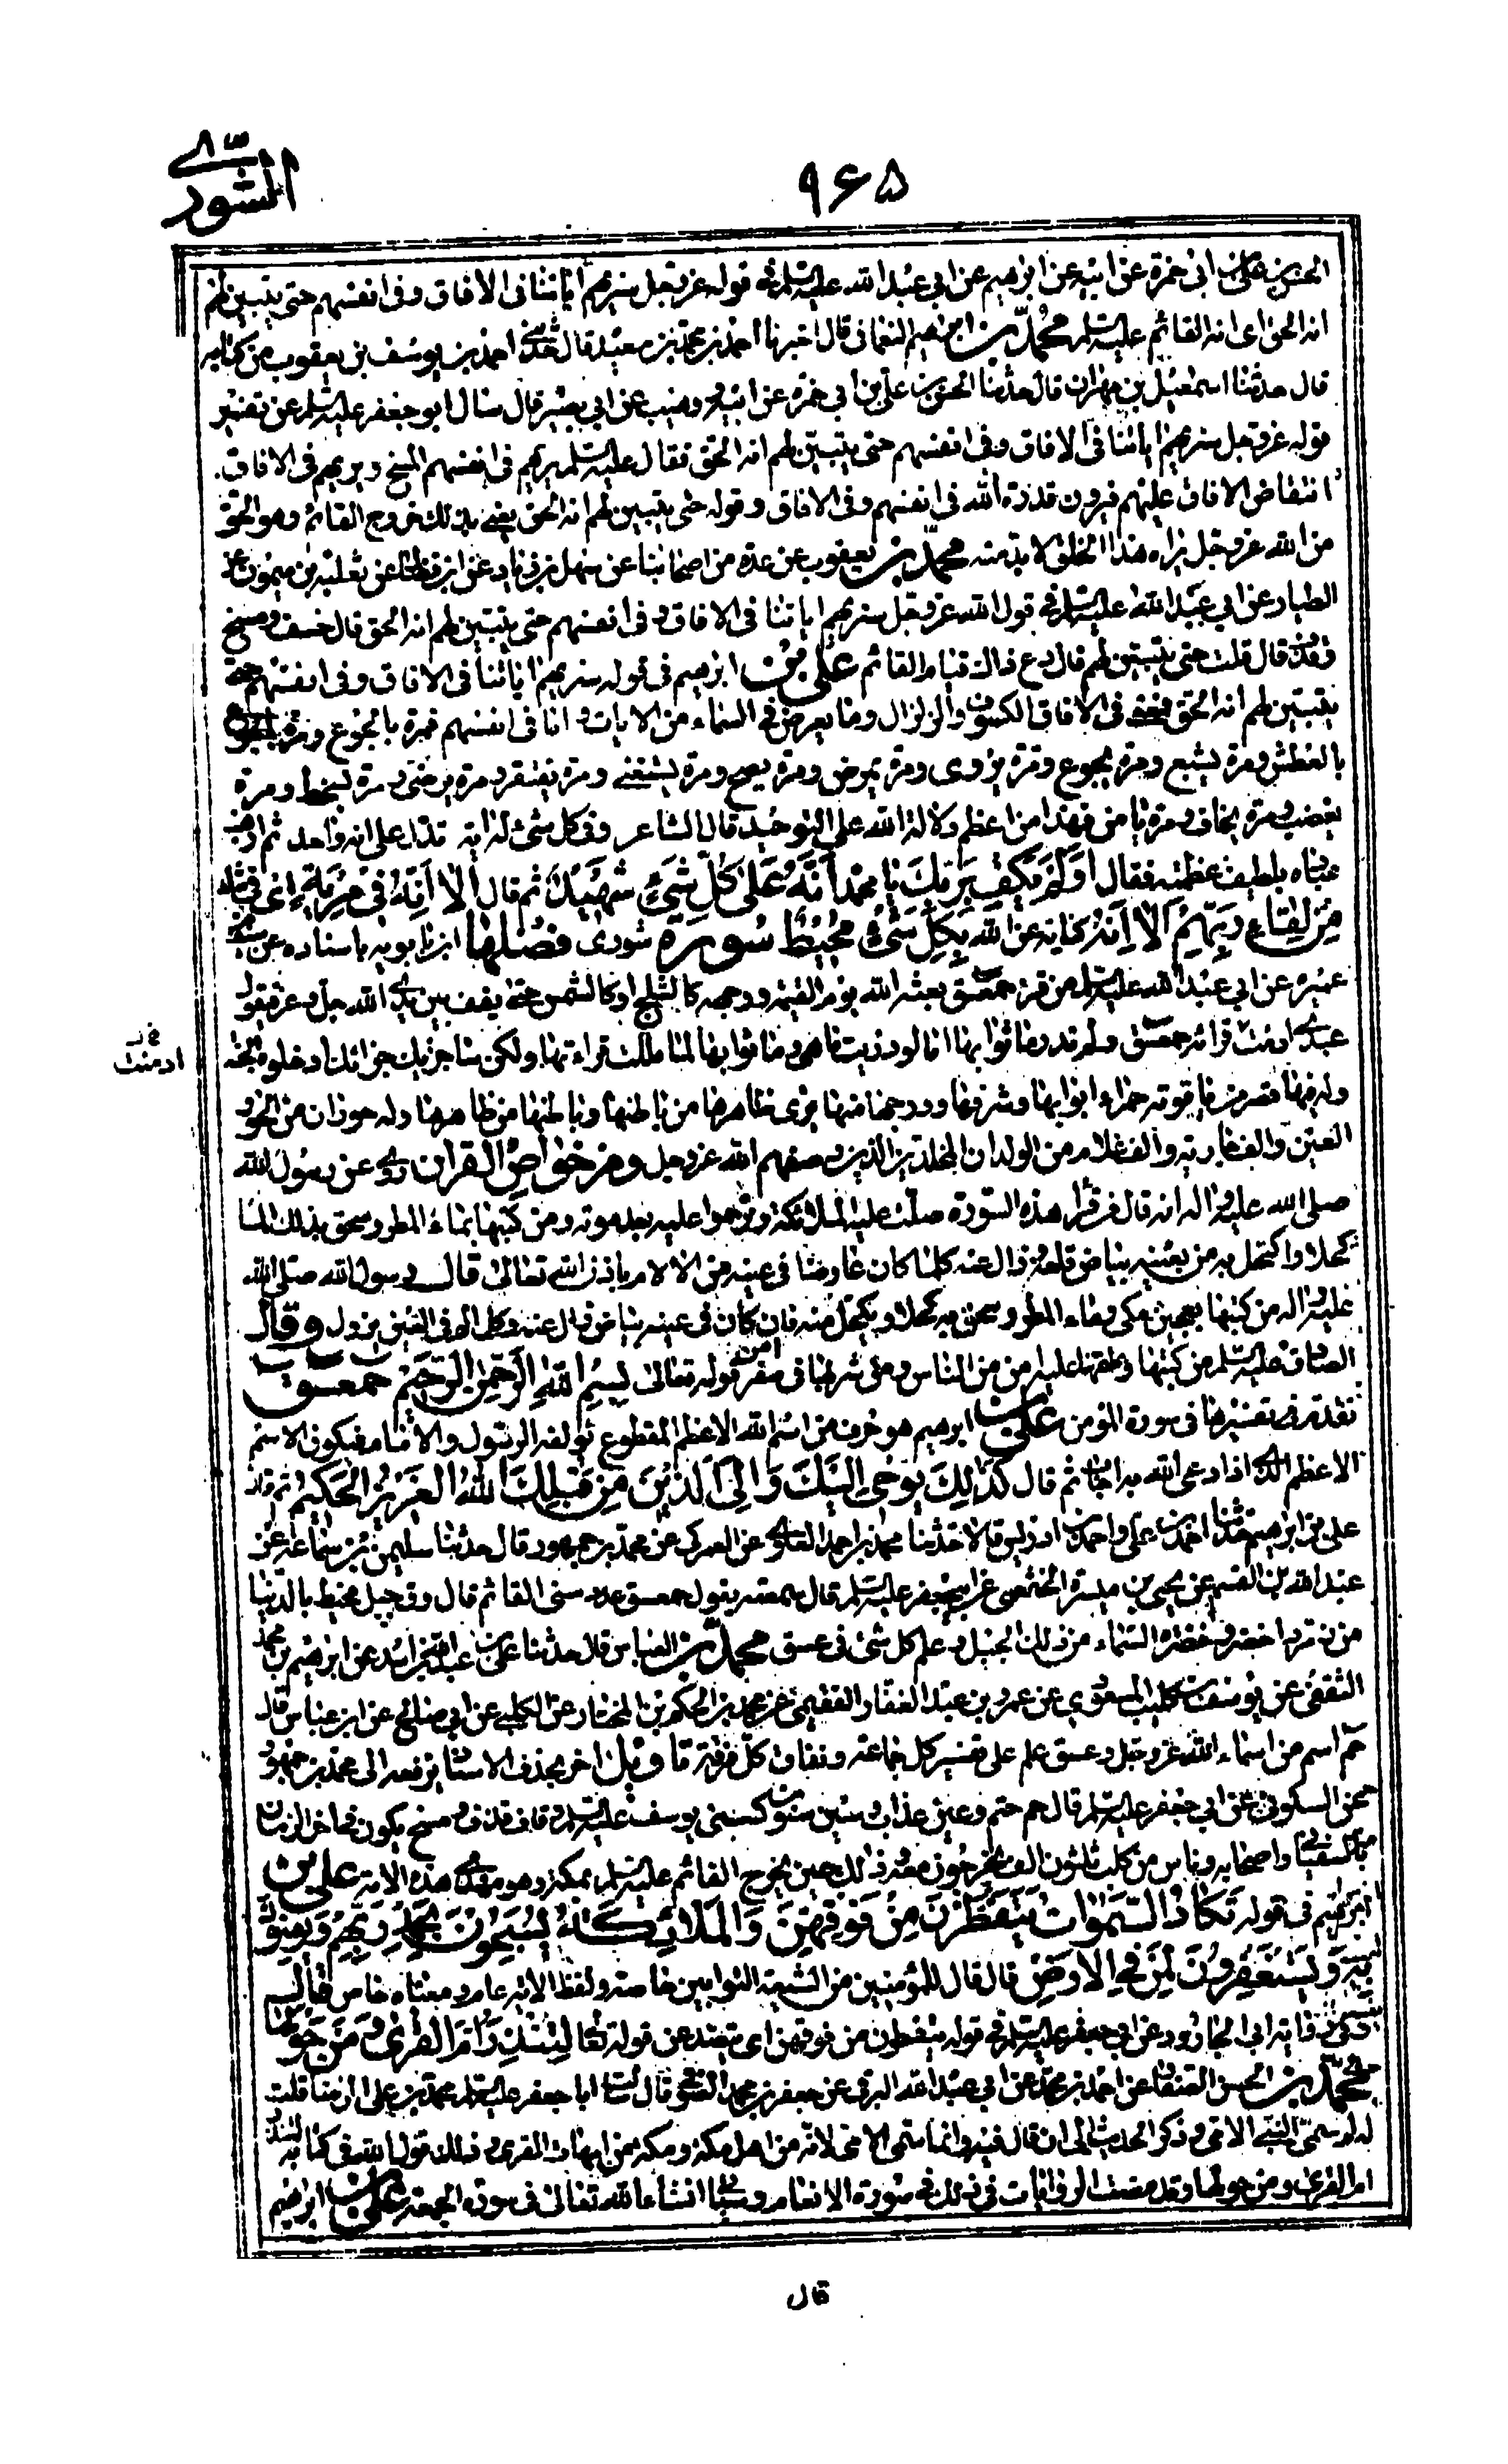 الشورى
٩٦٥
الحسن بن علي بن ابى حمزة عن ابيه عن ابراهيم عن ابي عبد الله عليه السلام في قوله عز وجل سنريهم اياتنا فى الافاق وفى انفسهم حتى يتبين لهم
انه الحق اى انه القائم عليه السلم محمد بن ابراهيم النعمانى قال اخبرنا احمد بن محمد بن سعيد قال حدثني احمد بن يوسف بن يعقوب من كتابه
قال حدثنا اسمعيل بن مهران قال حدثنا الحسن بن علي بن ابي حمزة عن ابيه ووهيب عن ابي بصير قال سئل ابو جعفر عليه السلم عن تفسير
قوله عز وجل سنريهم اياتنا في الافاق وفى انفسهم حتى يتبين لهم انه الحق فقال عليه السلم يريهم فى انفسهم المسخ ويريهم فى الافاق
انتقاض الافاق عليهم فيرون قدرة الله فى انفسهم وفى الافاق وقوله حتى يتبين لهم انه الحق يعنى بذلك خروج القائم وهو الحق
من الله عز وجل يراه هذا الخلق لا بد منه محمد بن يعقوب عن عدة من اصحابنا عن سهل بن زياد عن ابن فضال عن ثعلبة بن ميمون عن
الطيار عن ابي عبد الله عليه السلم في قول الله عز وجل سنريهم اياتنا فى الافاق وفى انفسهم حتى يتبين لهم انه الحق قال خسف ومسخ
وقذف قال قلت حتى يتبين لهم قال دع ذا ذاك قيام القائم علي بن ابرهيم فى قوله سنريهم اياتنا فى الافاق وفى انفسهم حتى
يتبين لهم انه الحق فمعنى فى الافاق الكسوف والزلزال وما يعرض في السماء من الايات و اما فى انفسهم فمرة بالجوع ومرة
بالعطش ومرة يشبع ومرة يجوع ومرة يروى ومرة يمرض ومرة يصح ومرة يستغنى ومرة يفتقر ومرة يرضى ومرة يسخط ومرة
يغضب ومرة يخاف ومرة يامن فهذا من اعظم دلالة الله على التوحيد قال الشاعر وفى كل شئ له اية تدل على انه واحد ثم ارهب
عباده بلطيف عظمته فقال اولم يكف بربك يا محمد انه على كل شئ شهيد ثم قال الا انهم في مرية اى فى شك
من لقاء ربهم الا انه كناية عن الله بكل شئ محيط سورة شورى فضلها ابن بابويه باسناده عن سيف بن
عميرة عن ابي عبد الله عليه السلم من قرء حمعسق بعثه الله يوم القيمة ووجهه كالثلج او كالشمس حتى يقف بين يدى الله جل وعز فيقول
عبدى ادمنت قرائة حمعسق ولم تدر ما ثوابها اما لو دريت ما هى وما ثوابها لما مللت قراءتها ولكن ساجزيك جزائك ادخلوه الجنة
ادمنت
وله فيها قصر من ياقوتة حمراء ابوابها وشرفها ودرجها منها يرى ظاهرها من باطنها وباطنها من ظاهرها وله حوران من الحور
العين والف جارية والف غلام من الولدان المخلدين الذين وصفهم الله عز وجل ومن خواص القران روى عن رسول الله
صلى الله عليه واله انه قال من قرأ هذه السورة صلت عليه الملائكة وترحموا عليه بعد موته ومن كتبها بماء المطر وسحق بذلك الماء
كحلا واكتحل به من بعينيه بياض قلعه وزال عنه كلما كان عارضا فى عينه من الالام باذن الله تعالى قال رسول الله صلى الله
عليه واله من كتبها بعجين مكى وماء المطر وسحق به كحلا ويكتحل منه فان كان فى عينه بياض زال عنه وكل الم فى العين يزول وقال
الصادق عليه السلم من كتبها وعلقها عليه امن من الناس ومن شربها فى سفر امن قوله تعالى بسم الله الرحمن الرحيم حمعسق
تقدم تفسيرها فى سورة المؤمن علي بن ابرهيم هو حرف من اسم الله الاعظم المقطوع يؤلفه الرسول والامام فيكون الاسم
الاعظم الذى اذا دعى الله به اجاب ثم قال كذلك يوحى اليك والى الذين من قبلك الله العزيز الحكيم ثم قال
علي بن ابرهيم حدثنا احمد بن علي واحمد بن ادريس قالا حدثنا محمد بن احمد العلوى عن العمركى عن محمد بن جمهور قال حدثنا سليمن بن سماعة عن
عبد الله بن القسم عن يحيى بن ميسرة الخثعمى عن ابي جعفر عليه السلم قال سمعته يقول حمعسق عدد سنى القائم قال وق جبل محيط بالدنيا
من زمرد اخضر وخضرة السماء من ذلك الجبل وعلم كل شئ فى عسق محمد بن العباس قال حدثنا علي بن عبد الله بن اسد عن ابرهيم بن محمد
الثقفى عن يوسف بن كليب المسعودي عن عمرو بن عبد الغفار الفقيمى عن محمد بن الحكم بن المختار عن الكلبى عن ابي صالح عن ابن عباس قال
حم اسم من اسماء الله عز وجل وعسق علم على تفسير كل جماعة ونفاق كل فرقة تاويل اخر بحذف الاسناد يرفعه الى محمد بن جمهور
عن السكونى عن ابي جعفر عليه السلم قال حم حتم وعين عذاب وسين سنون كسنى يوسف عليه السلم وقاف قذف ومسخ يكون فى اخر الزمان
بالسفيانى واصحابه وناس من كلب ثلثون الف يخرجون معه وذلك حين يخرج القائم عليه السلم بمكة وهو مهدى هذه الامة علي بن
ابرهيم فى قوله تكاد السموات يتفطرن من فوقهن والملائكة يسبحون بحمد ربهم ويؤمنون
به ويستغفرون لمن في الارض قال قال للمؤمنين من الشيعة التوابين خاصة ولفظ الاية عام ومعناه خاص قال
وفى رواية ابى الجارود عن ابي جعفر عليه السلم في قوله يتفطرن من فوقهن اى يتصدعن قوله تعالى لتنذر ام القرى ومن حولها
محمد بن الحسن الصفار عن احمد بن محمد عن ابى عبد الله البرقى عن جعفر بن محمد الصوفى قال سئلت ابا جعفر عليه السلم محمد بن علي الرضا قلت
له لم سمى النبي الامى وذكر الحديث الى ان قال فيه وانما سمى الامى لانه من اهل مكة ومكة من امهات القرى وذلك قول الله فى كتابه لتنذر
ام القرى ومن حولها وقد مضت الروايات فى ذلك في سورة الانعام وسياتى انشاء الله تعالى فى سورة الجمعة علي بن ابراهيم
قال